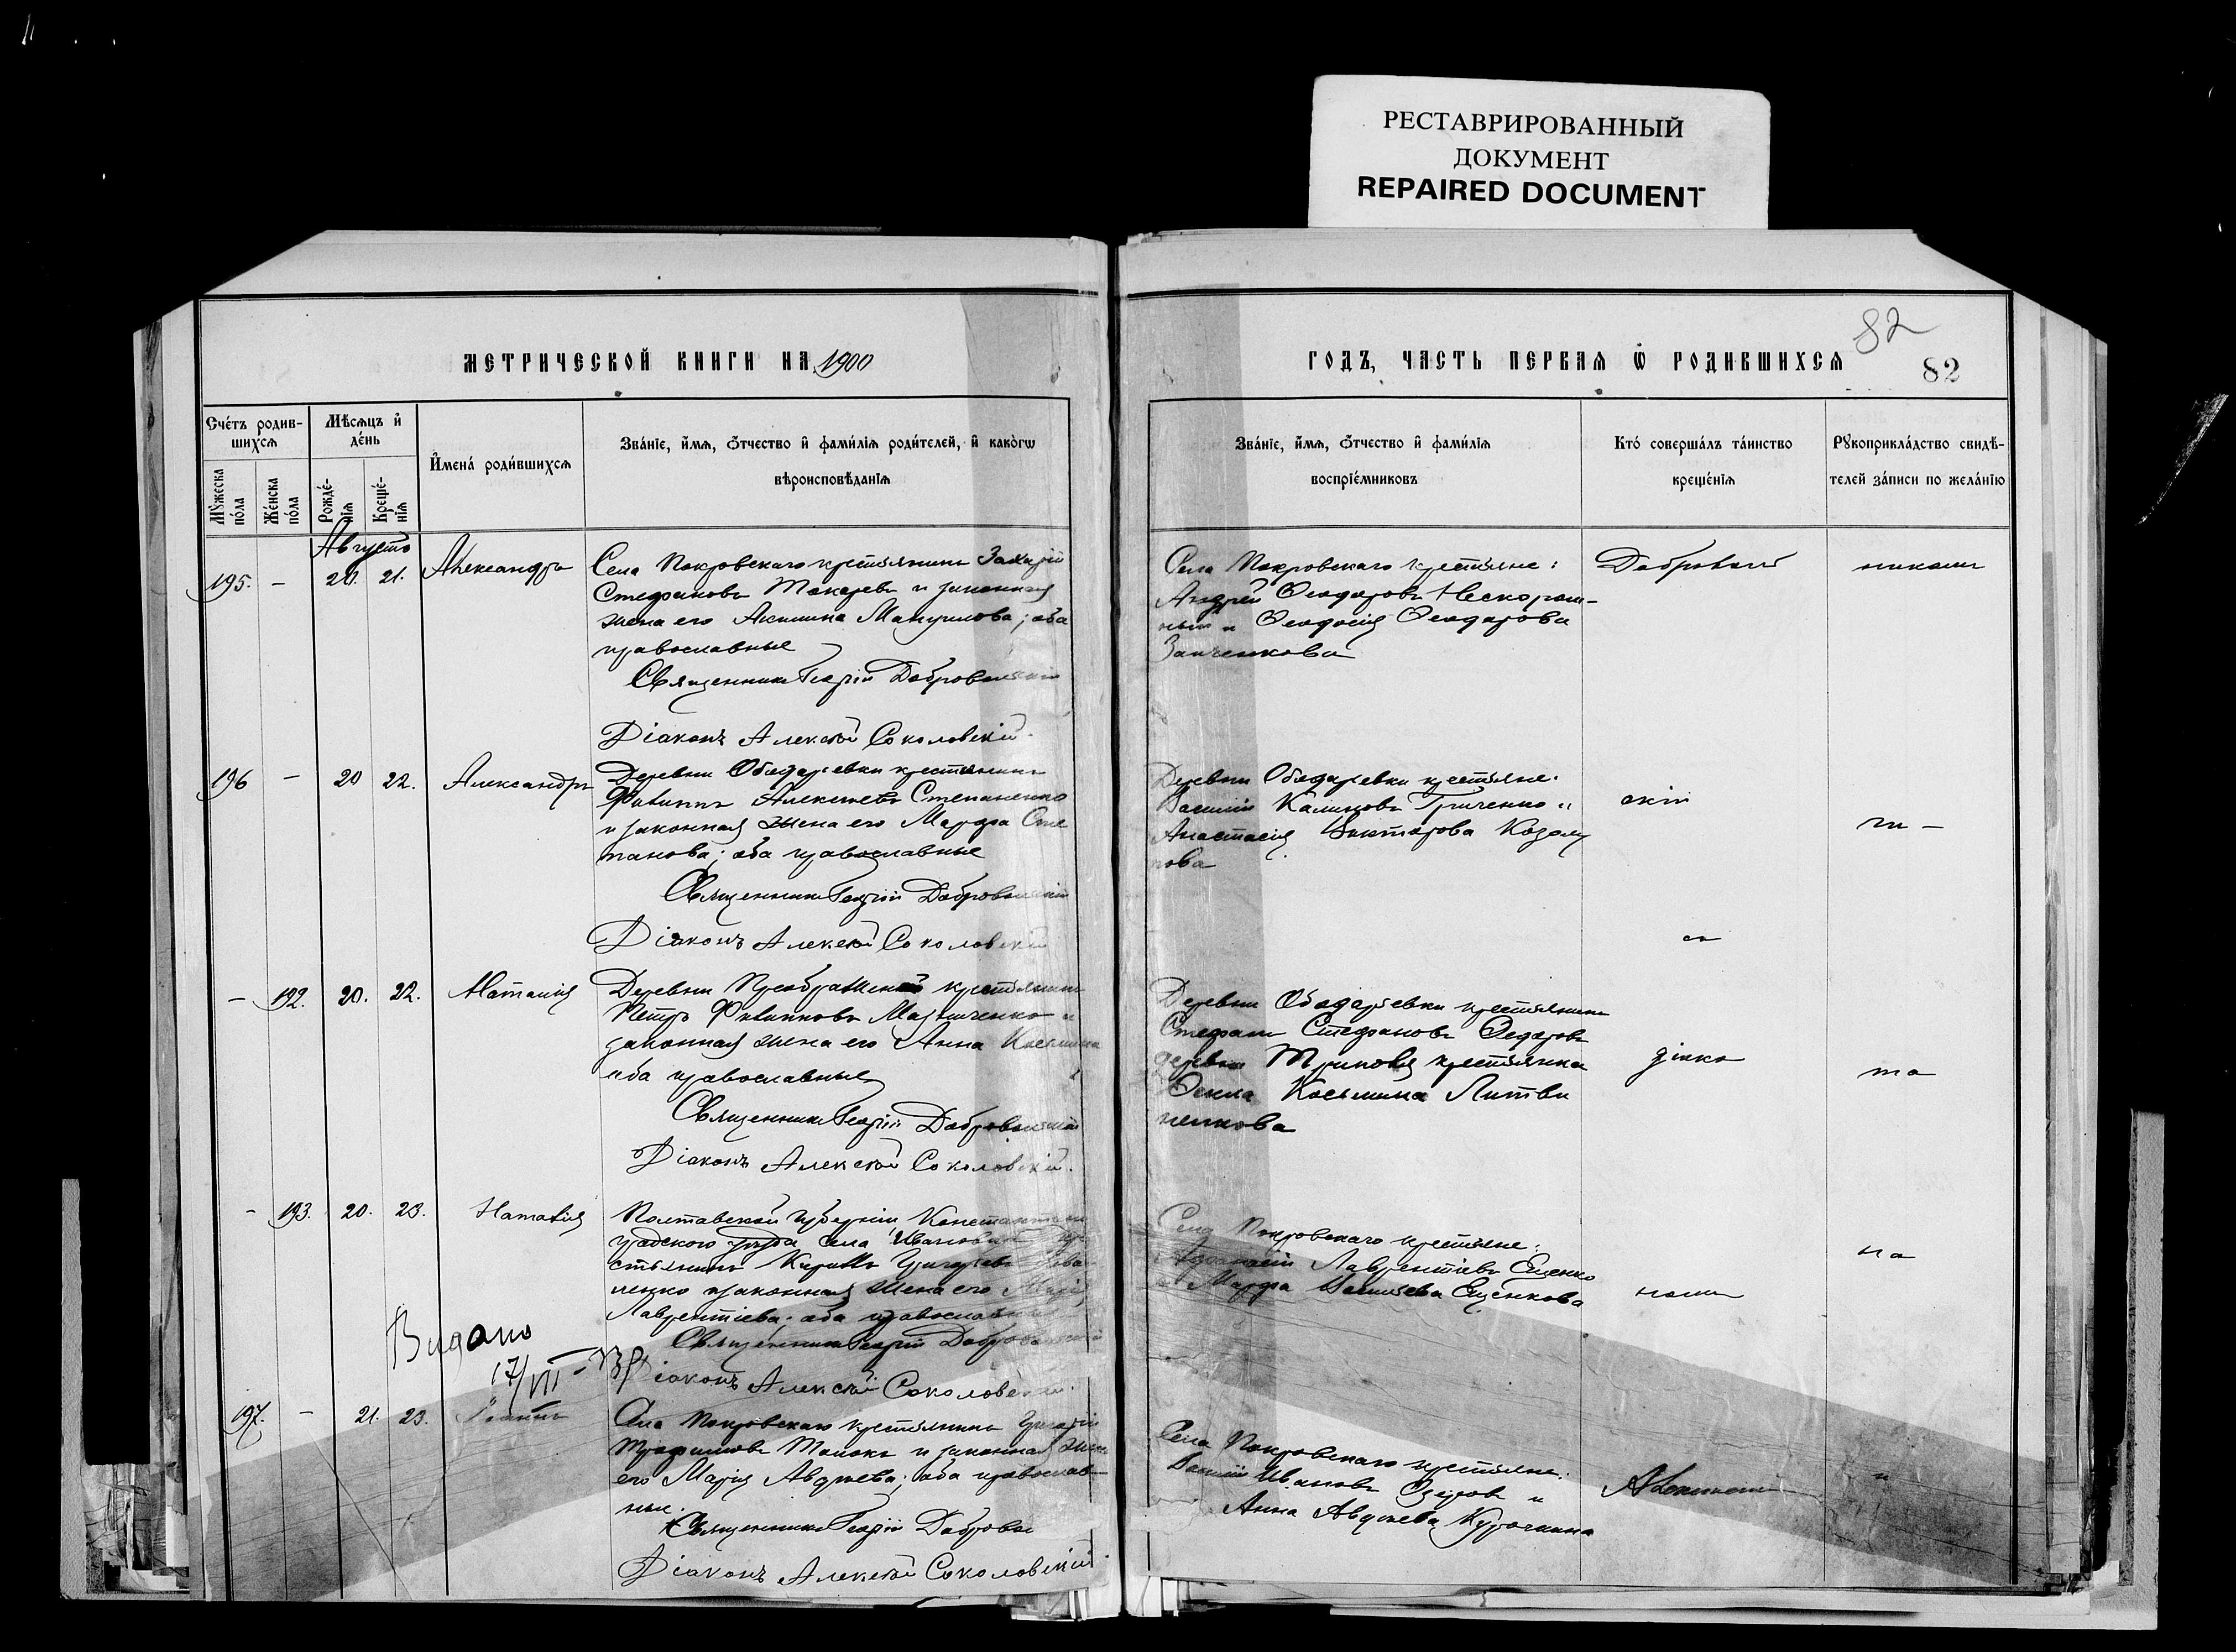 РЕСТАВРИРОВАННЫЙ
ДОКУМЕНТ
REPAIRED DOCUMENT
82
82
МЕТРИЧЕСКОЙ КНИГИ НА 1900
ГОДЪ, ЧАСТЬ ПЕРВАЯ Ѡ РОДИВШИХСЯ
Сче́тъ родив-
шихсѧ
Мѣсѧцъ и҆
де́нь
И҆мена̀ роди́вшихсѧ
Зва́нїе, и҆́мѧ, ѻ҆́тчество и҆ фами́лїѧ роди́телей, и҆ како́гѡ
вѣроисповѣ́данїѧ
Мꙋ́жеска
по́ла
Же́нска
по́ла
Рожде́-
нїѧ
Креще́-
нїѧ
Зва́нїе, и҆́мѧ, ѻ҆́тчество и҆ фами́лїѧ
воспрїе́мниковъ
Кто̀ соверша́лъ та́инство
креще́нїѧ
Рꙋкоприкла́дство свидѣ́-
телей за́писи по жела́нїю
Августъ
195. – 20. 21. Александръ
Села Покровскаго крестьянинъ Захарій
Стефановъ Токаревъ и законная
жена его Акилина Мануилова; оба
православные
Священникъ Георгій Добровольскій
Діаконъ Алексѣй Соколовскій.
Села Покровскаго крестьяне:
Андрей Ѳеодоровъ Нескором-
ный и Ѳеодосія Ѳеодорова
Занченкова
196 – 20 22. Александръ
Деревни Ободаревки крестьянинъ
Филиппъ Алексѣевъ Степаненко
и законная жена его Марфа Сте
панова; оба православные
Священникъ Георгій Добровольскій
Діаконъ Алексѣй Соколовскій
Деревни Ободаревки крестьяне:
Василій Калиновъ Гриченко и
Анастасія Викторова Козолу
пова
скій
– 192. 20. 22. Наталія
Деревни крестьянинъ
Петръ Филипповъ и
законная жена его Анна Косьмина
оба православные
Священникъ Георгій Добровольскій
Діаконъ Алексѣй Соколовскій.
Деревни Ободаревки крестьянинъ
Стефанъ Стефановъ Ѳедоровъ
деревни крестьянка
Ѳекла Косьмина Литви
ненкова
діако
та
- 193. 20. 23. Наталія
Полтавской губерніи, Константин
градскаго уѣзда села Ивановки кре
стьянинъ Кириллъ Григорьевъ
ленко и законная жена его Марія
Лаврентіева; оба православные
Священникъ Георгій Добровольскій
Діаконъ Алексѣй Соколовскій.
Села Покровскаго крестьяне:
Аѳанасій Лаврентіевъ Ещенко
и Марфа Ещенкова
номъ
на
Видано
17/VII
197. – 21. 23. Іоаннъ
Села Покровскаго крестьянинъ Григорій
Трофимовъ и законная жена
его Марія Авдѣева; оба православ-
ные.
Священникъ Георгій Добровол
Діаконъ Алексѣй Соколовскій.
Села Покровскаго крестьяне:
Василій Ивановъ и
Анна Авдѣева Курочкина